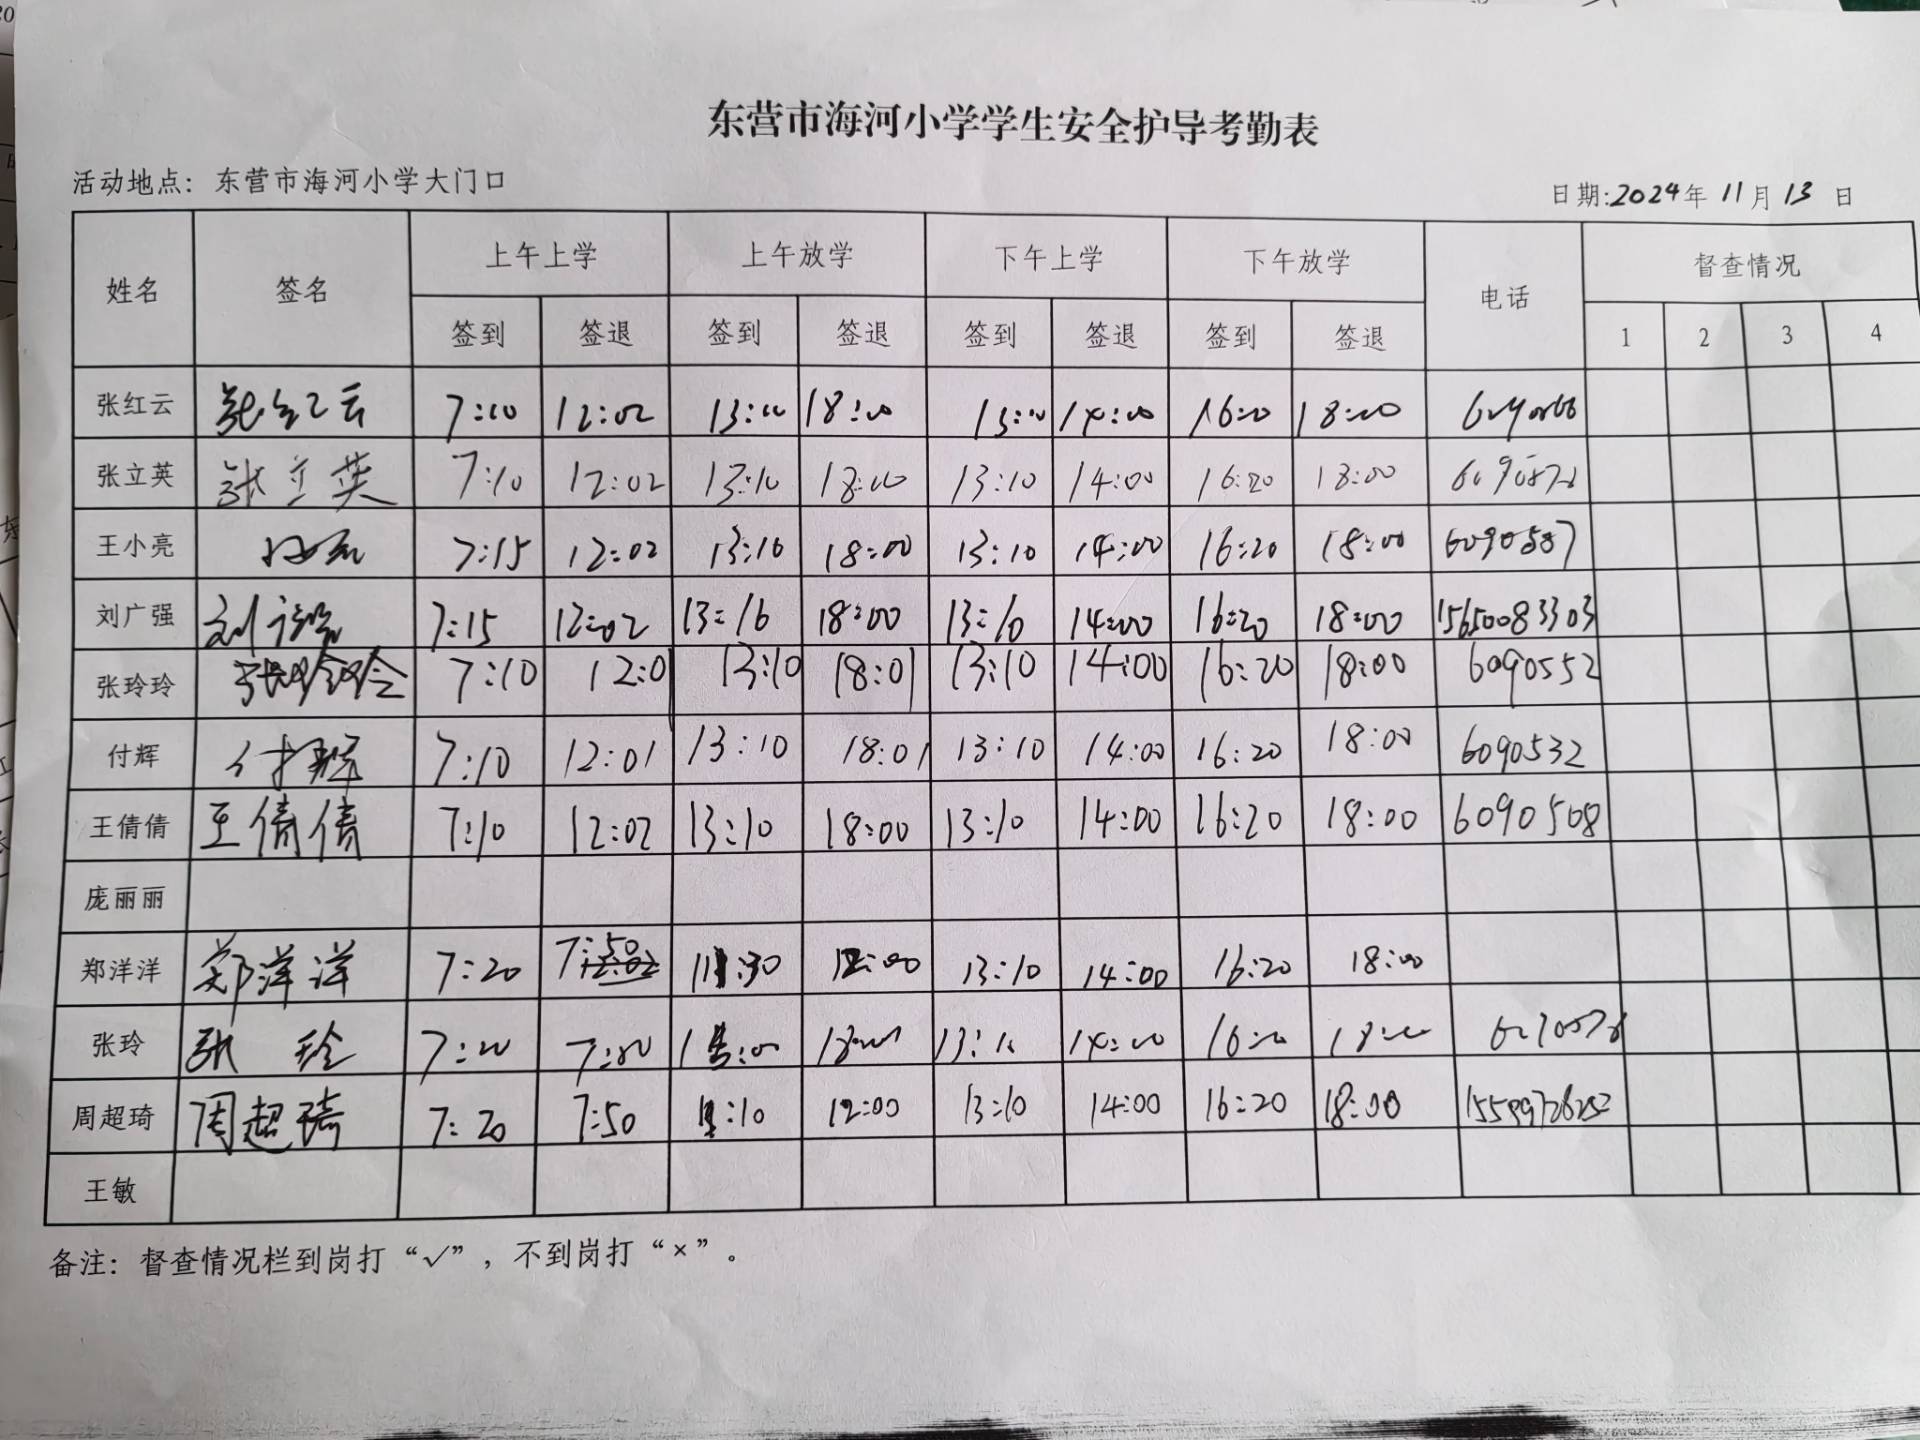 东营市海河小学学生安全护导考勤表
活动地点：东营市海河小学大门口
日期:2024年 11月 13 日
姓名 签名 上午上学 上午放学 下午上学 下午放学 电话 督查情况
签到 签退 签到 签退 签到 签退 签到 签退 1 2 3 4
张红云 张红云 7:10 12:02 13:10 18:00 13:10 14:00 16:20 18:00
张立英 张立英 7:10 12:02 13:10 18:00 13:10 14:00 16:20 18:00
王小亮 7:15 12:02 13:10 18:00 13:10 14:00 16:20 18:00 6090587
刘广强 刘广强 7:15 12:02 13:16 18:00 13:10 14:00 16:20 18:00 15650083303
张玲玲 张玲玲 7:10 12:01 13:10 18:01 13:10 14:00 16:20 18:00 6090552
付辉 付辉 7:10 12:01 13:10 18:01 13:10 14:00 16:20 18:00 6090532
王倩倩 王倩倩 7:10 12:02 13:10 18:00 13:10 14:00 16:20 18:00 6090508
庞丽丽
郑洋洋 郑洋洋 7:20 7:50 11:30 12:00 13:10 14:00 16:20 18:00
张玲 张玲 7:20 13:10 14:00 16:20 18:00
周超琦 周超琦 7:20 7:50 12:00 13:10 14:00 16:20 18:00
王敏
备注：督查情况栏到岗打“√”，不到岗打“×”。